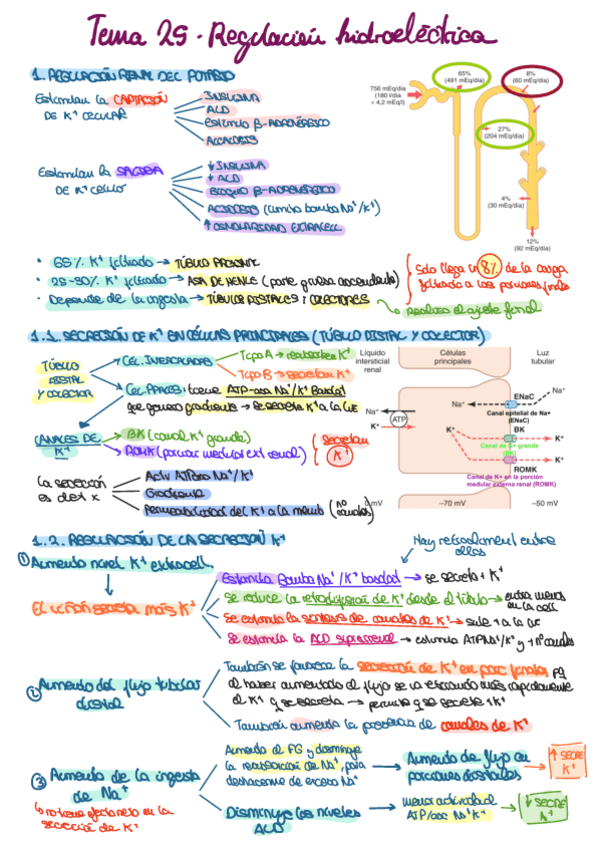 Tema 25 · Regulación hidroeléctrica
1. REGULACIÓN RENAL DEL POTASIO
Estimulan la CAPTACIÓN
DE K⁺ CELULAR
INSULINA
ALD
Estímulo β-ADRENÉRGICO
ALCALOSIS
Estimulan la SALIDA
DE K⁺ CELULAR
↓ INSULINA
↓ ALD
BLOQUEO β-ADRENÉRGICO
ACIDOSIS (limita bomba Na⁺/K⁺)
↑ OSMOLARIDAD EXTRACEL
756 mEq/día
(180 l/día
× 4,2 mEq/l)
65%
(491 mEq/día)
8%
(60 mEq/día)
27%
(204 mEq/día)
4%
(30 mEq/día)
12%
(92 mEq/día)
• 65% K⁺ filtrado → TÚBULO PROXIMAL
• 25-30% K⁺ filtrado → ASA DE HENLE (parte gruesa ascendente)
• Depende de la ingesta → TÚBULOS DISTALES y COLECTORES
Solo llega un 8% de la carga
filtrado a las porciones finales
Realizan el ajuste final
1.1. SECRECIÓN DE K⁺ EN CÉLULAS PRINCIPALES (TÚBULO DISTAL Y COLECTOR)
TÚBULO
DISTAL
Y COLECTOR
Cel. INTERCALADAS
Tipo A → reabsorben K⁺
Tipo B → secretan K⁺
Cel. PPALES: tiene ATP-asa Na⁺/K⁺ basal
que genera gradiente → se secreta K⁺ a la luz
CANALES DE
K⁺
BK (canal K⁺ grande)
ROMK (porción medular ext renal)
Secretan
K⁺
La secreción
es det x
Activ ATPasa Na⁺/K⁺
Gradiente
Permeabilidad del K⁺ a la memb (nº canales)
Líquido
intersticial
renal
Células
principales
Luz
tubular
Na⁺
Na⁺
ENaC
Canal epitelial de Na+
(ENaC)
Na⁺
ATP
K⁺
K⁺
BK
K⁺
Canal de K+ grande
(BK)
K⁺
ROMK
Canal de K+ en la porción
medular externa renal (ROMK)
0 mV
−70 mV
−50 mV
1.2. REGULACIÓN DE LA SECRECIÓN K⁺
Hay retroaliment entre
ellas
① Aumento nivel K⁺ extracel.
El riñón secreta más K⁺
Estimula Bomba Na⁺/K⁺ basal → se secreta + K⁺
Se reduce la retrodifusión de K⁺ desde el túbulo → entra menos en la cel
Se estimula la síntesis de canales de K⁺ → sale + a la luz
Se estimula la ALD suprarrenal → estimula ATP Na⁺/K⁺ y + nº canales
② Aumento del flujo tubular
distal
También se favorece la secreción de K⁺ en porc finales pq
al haber aumentado el flujo se va retirando más rápidamente
el K⁺ q se secreta → permite q se secrete + K⁺
También aumenta la presencia de canales de K⁺
③ Aumento de la ingesta
de Na⁺
↳ no tiene efecto neto en la
secreción de K⁺
Aumento el FG y disminuye
la reabsorción de Na⁺, para
deshacerme de exceso Na⁺
Aumento de flujo en
porciones distales
↑ SECRE
K⁺
Disminuye los niveles
ALD
menor actividad
ATP/asa Na⁺K⁺
↓ SECRE
K⁺